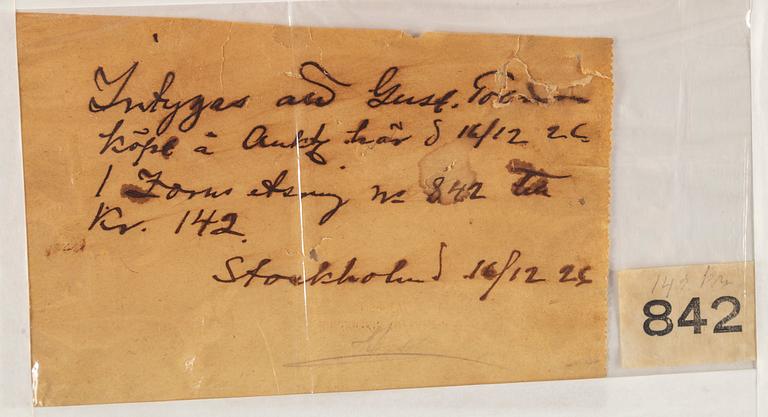 Intygas att Gust.
köpt å Aukt här d 16/12 26
1 Zorns etsning No 842 för
Kr. 142.
Stockholm d 16/12 26
142 Kr
842